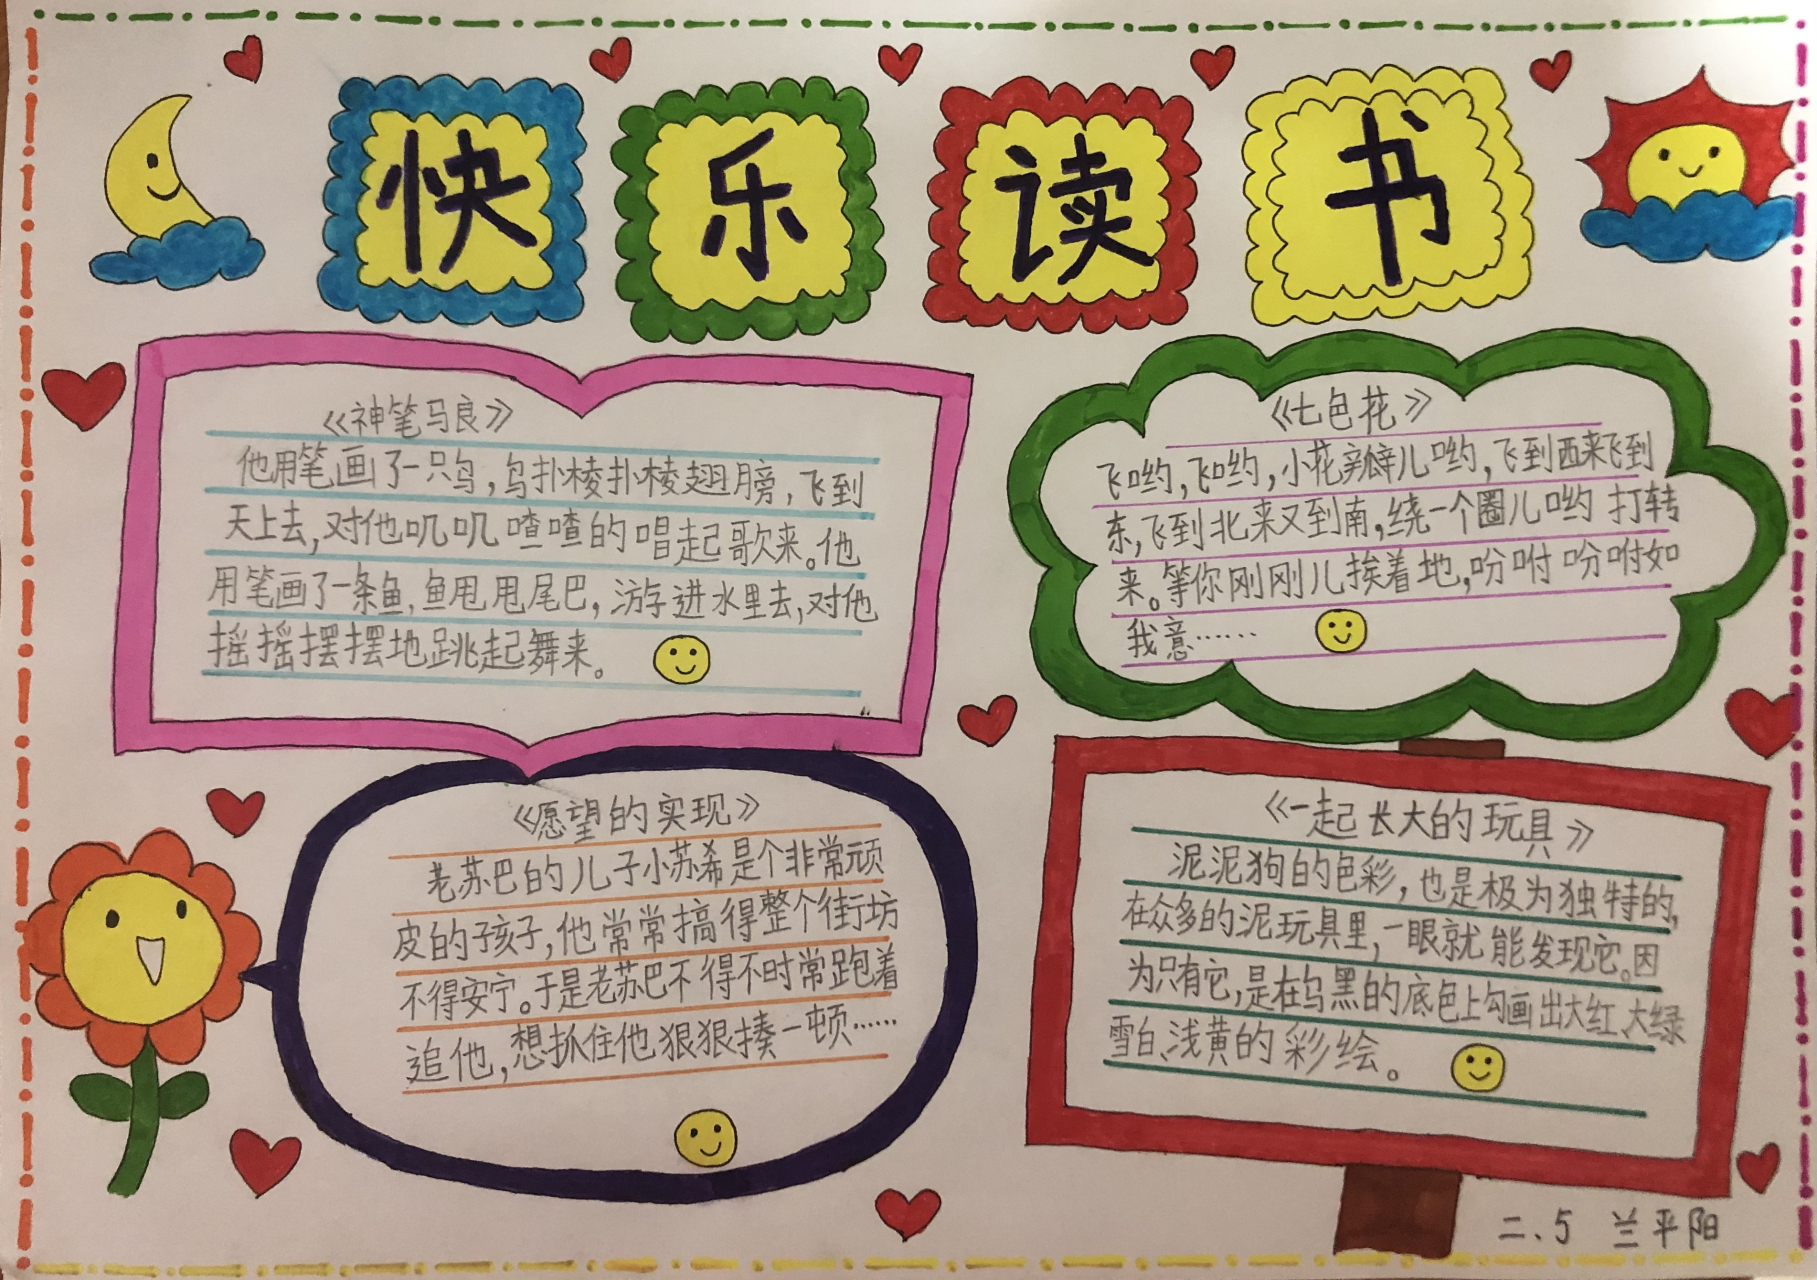 快乐读书
《神笔马良》
他用笔画了一只鸟,鸟扑棱扑棱翅膀,飞到
天上去,对他叽叽喳喳的唱起歌来。他
用笔画了一条鱼,鱼甩甩尾巴,游进水里去,对他
摇摇摆摆地跳起舞来。
《七色花》
飞哟,飞哟,小花瓣儿哟,飞到西来飞到
东,飞到北来又到南,绕一个圈儿哟 打转
来。等你刚刚儿挨着地,吩咐吩咐如
我意……
《愿望的实现》
老苏巴的儿子小苏希是个非常顽
皮的孩子,他常常搞得整个街坊
不得安宁。于是老苏巴不得不时常跑着
追他,想抓住他狠狠揍一顿……
《一起长大的玩具》
泥泥狗的色彩,也是极为独特的,
在众多的泥玩具里,一眼就能发现它。因
为只有它,是在乌黑的底色上勾画出大红、大绿
雪白、浅黄的彩绘。
二.5 兰平阳